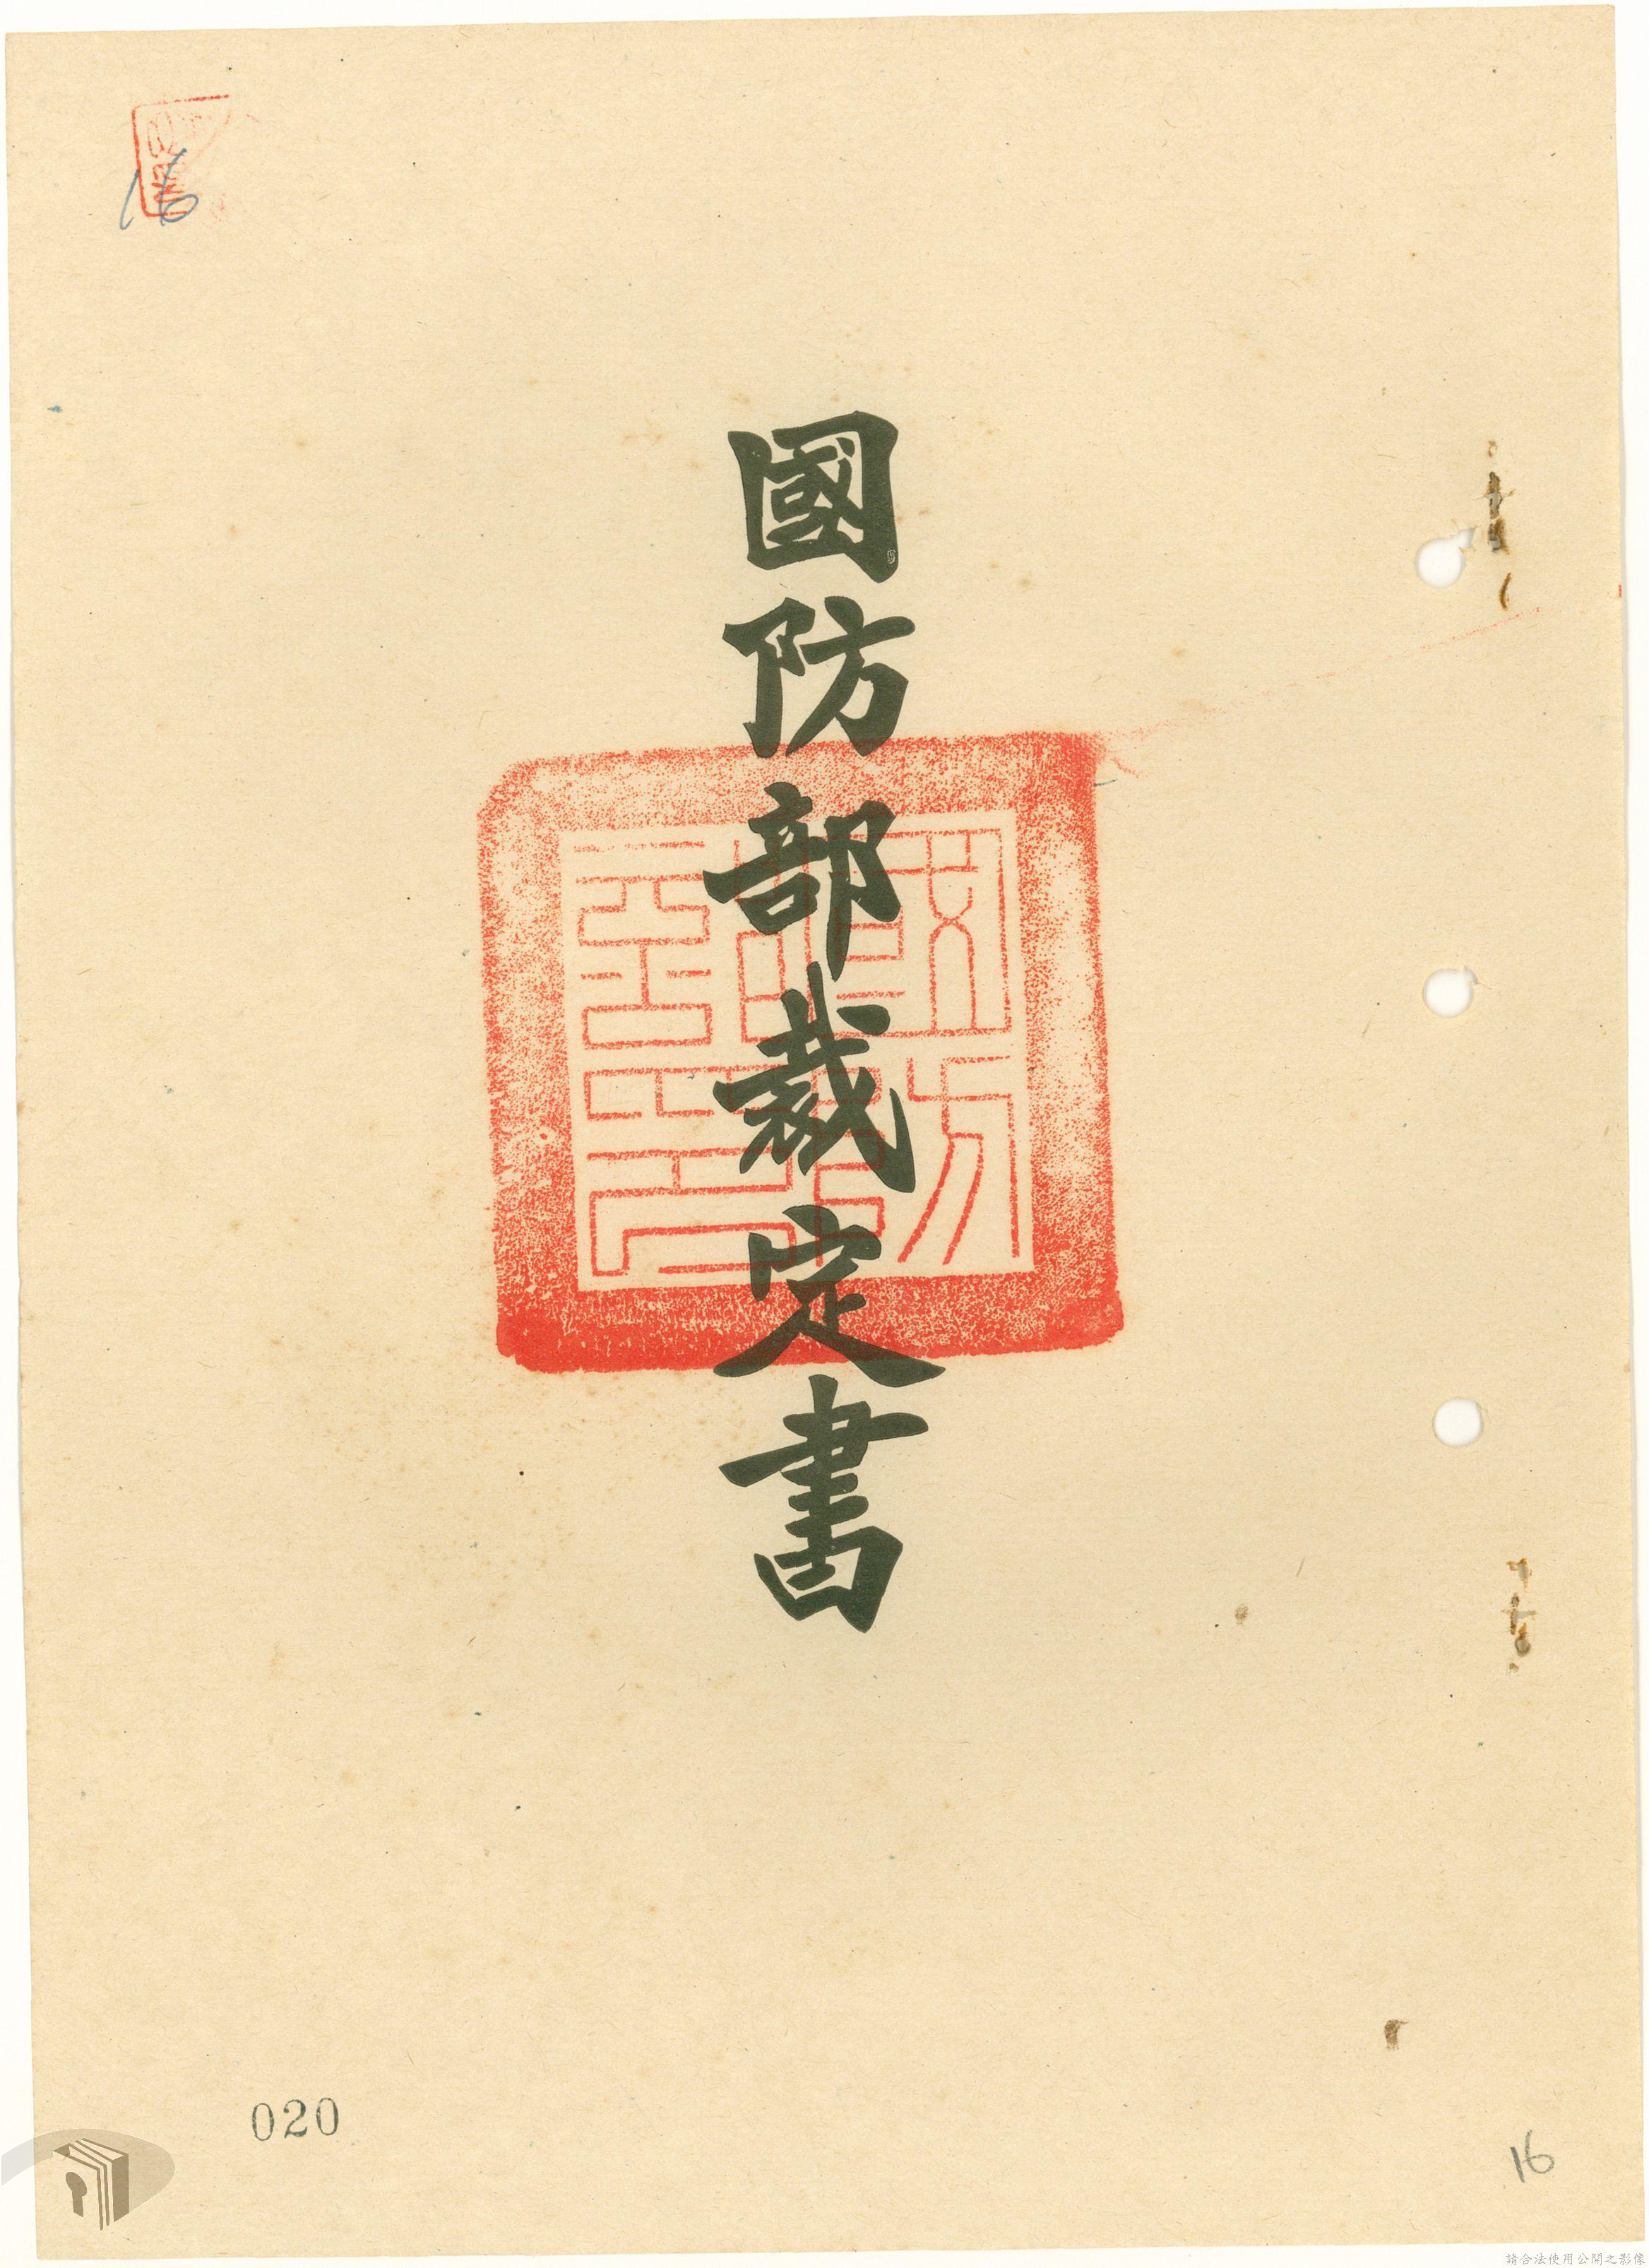 16
國防部裁定書
020
16
請合法使用公開之影像